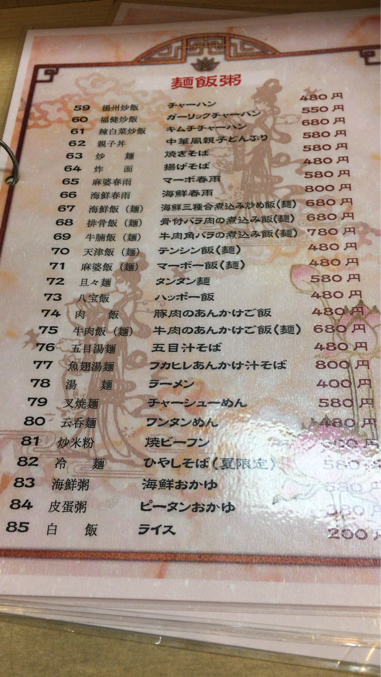 麺飯粥
59 揚州炒飯 チャーハン 480円
60 福健炒飯 ガーリックチャーハン 550円
61 辣白菜炒飯 キムチチャーハン 580円
62 親子丼 中華風親子どんぶり 580円
63 炒麺 焼きそば 480円
64 炸面 揚げそば 580円
65 麻婆春雨 マーボ春雨 580円
66 海鮮春雨 海鮮春雨 800円
67 海鮮飯（麺） 海鮮三種合煮込み炒め飯（麺） 680円
68 排骨飯（麺） 骨付バラ肉の煮込み飯（麺） 680円
69 牛腩飯（麺） 牛肉角バラの煮込み飯（麺） 780円
70 天津飯（麺） テンシン飯（麺） 480円
71 麻婆飯（麺） マーボー飯（麺） 480円
72 旦々麺 タンタン麺 580円
73 八宝飯 ハッポー飯 480円
74 肉飯 豚肉のあんかけご飯 480円
75 牛肉飯（麺） 牛肉のあんかけご飯（麺） 680円
76 五目湯麺 五目汁そば 480円
77 魚翅湯麺 フカヒレあんかけ汁そば 800円
78 湯麺 ラーメン 400円
79 叉焼麺 チャーシューめん 580円
80 云呑麺 ワンタンめん 480円
81 炒米粉 焼ビーフン 580円
82 冷麺 ひやしそば（夏限定）
83 海鮮粥 海鮮おかゆ
84 皮蛋粥 ピータンおかゆ
85 白飯 ライス 200円